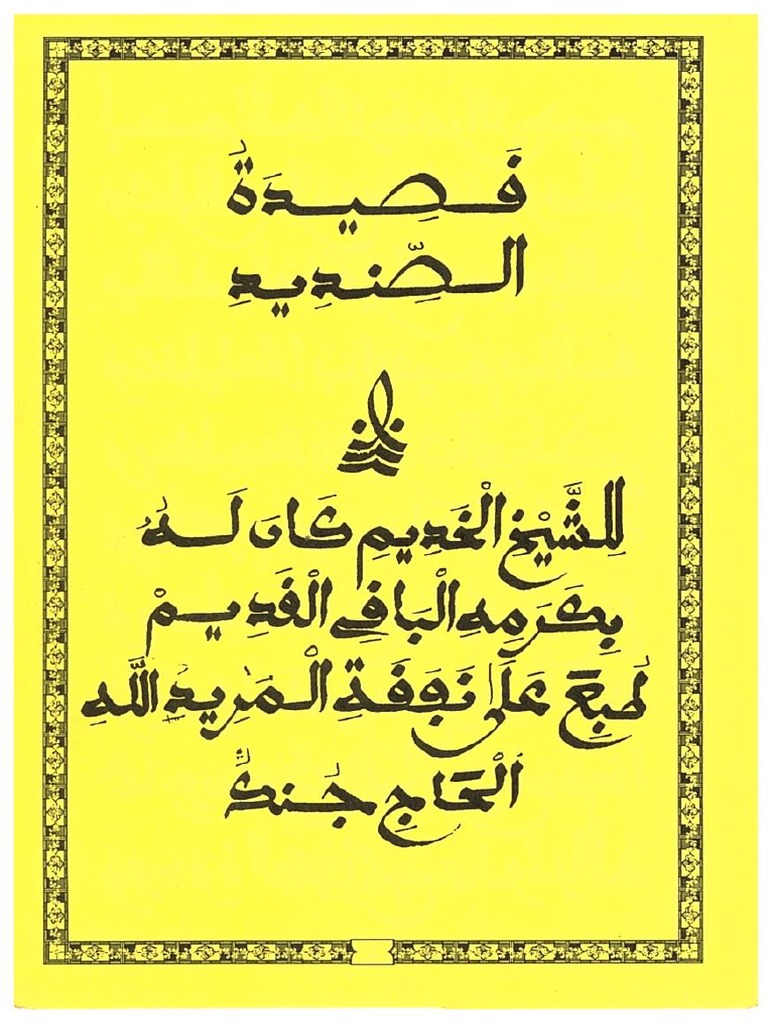 قَصِيدَةُ
الصِّنْدِيدِ
لِلشَّيْخِ الْخَدِيمِ كَانَ لَهُ
بِكَرَمِهِ الْبَاقِي الْقَدِيمْ
طُبِعَ عَلَى نَفَقَةِ الْمُرِيدِ اللَّهِ
الْحَاجِ جُنكٌ